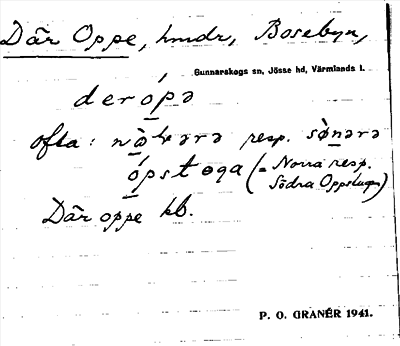 Där Oppe, hmdr, Bosebyn,
Gunnarskogs sn, Jösse hd, Värmlands l.
derópə
ofta: nə̀ɽərə resp. sə̀nərə
ópstəga (= Norra resp.
Södra Oppstugan)
Där oppe kb.
P. O. GRANÉR 1941.